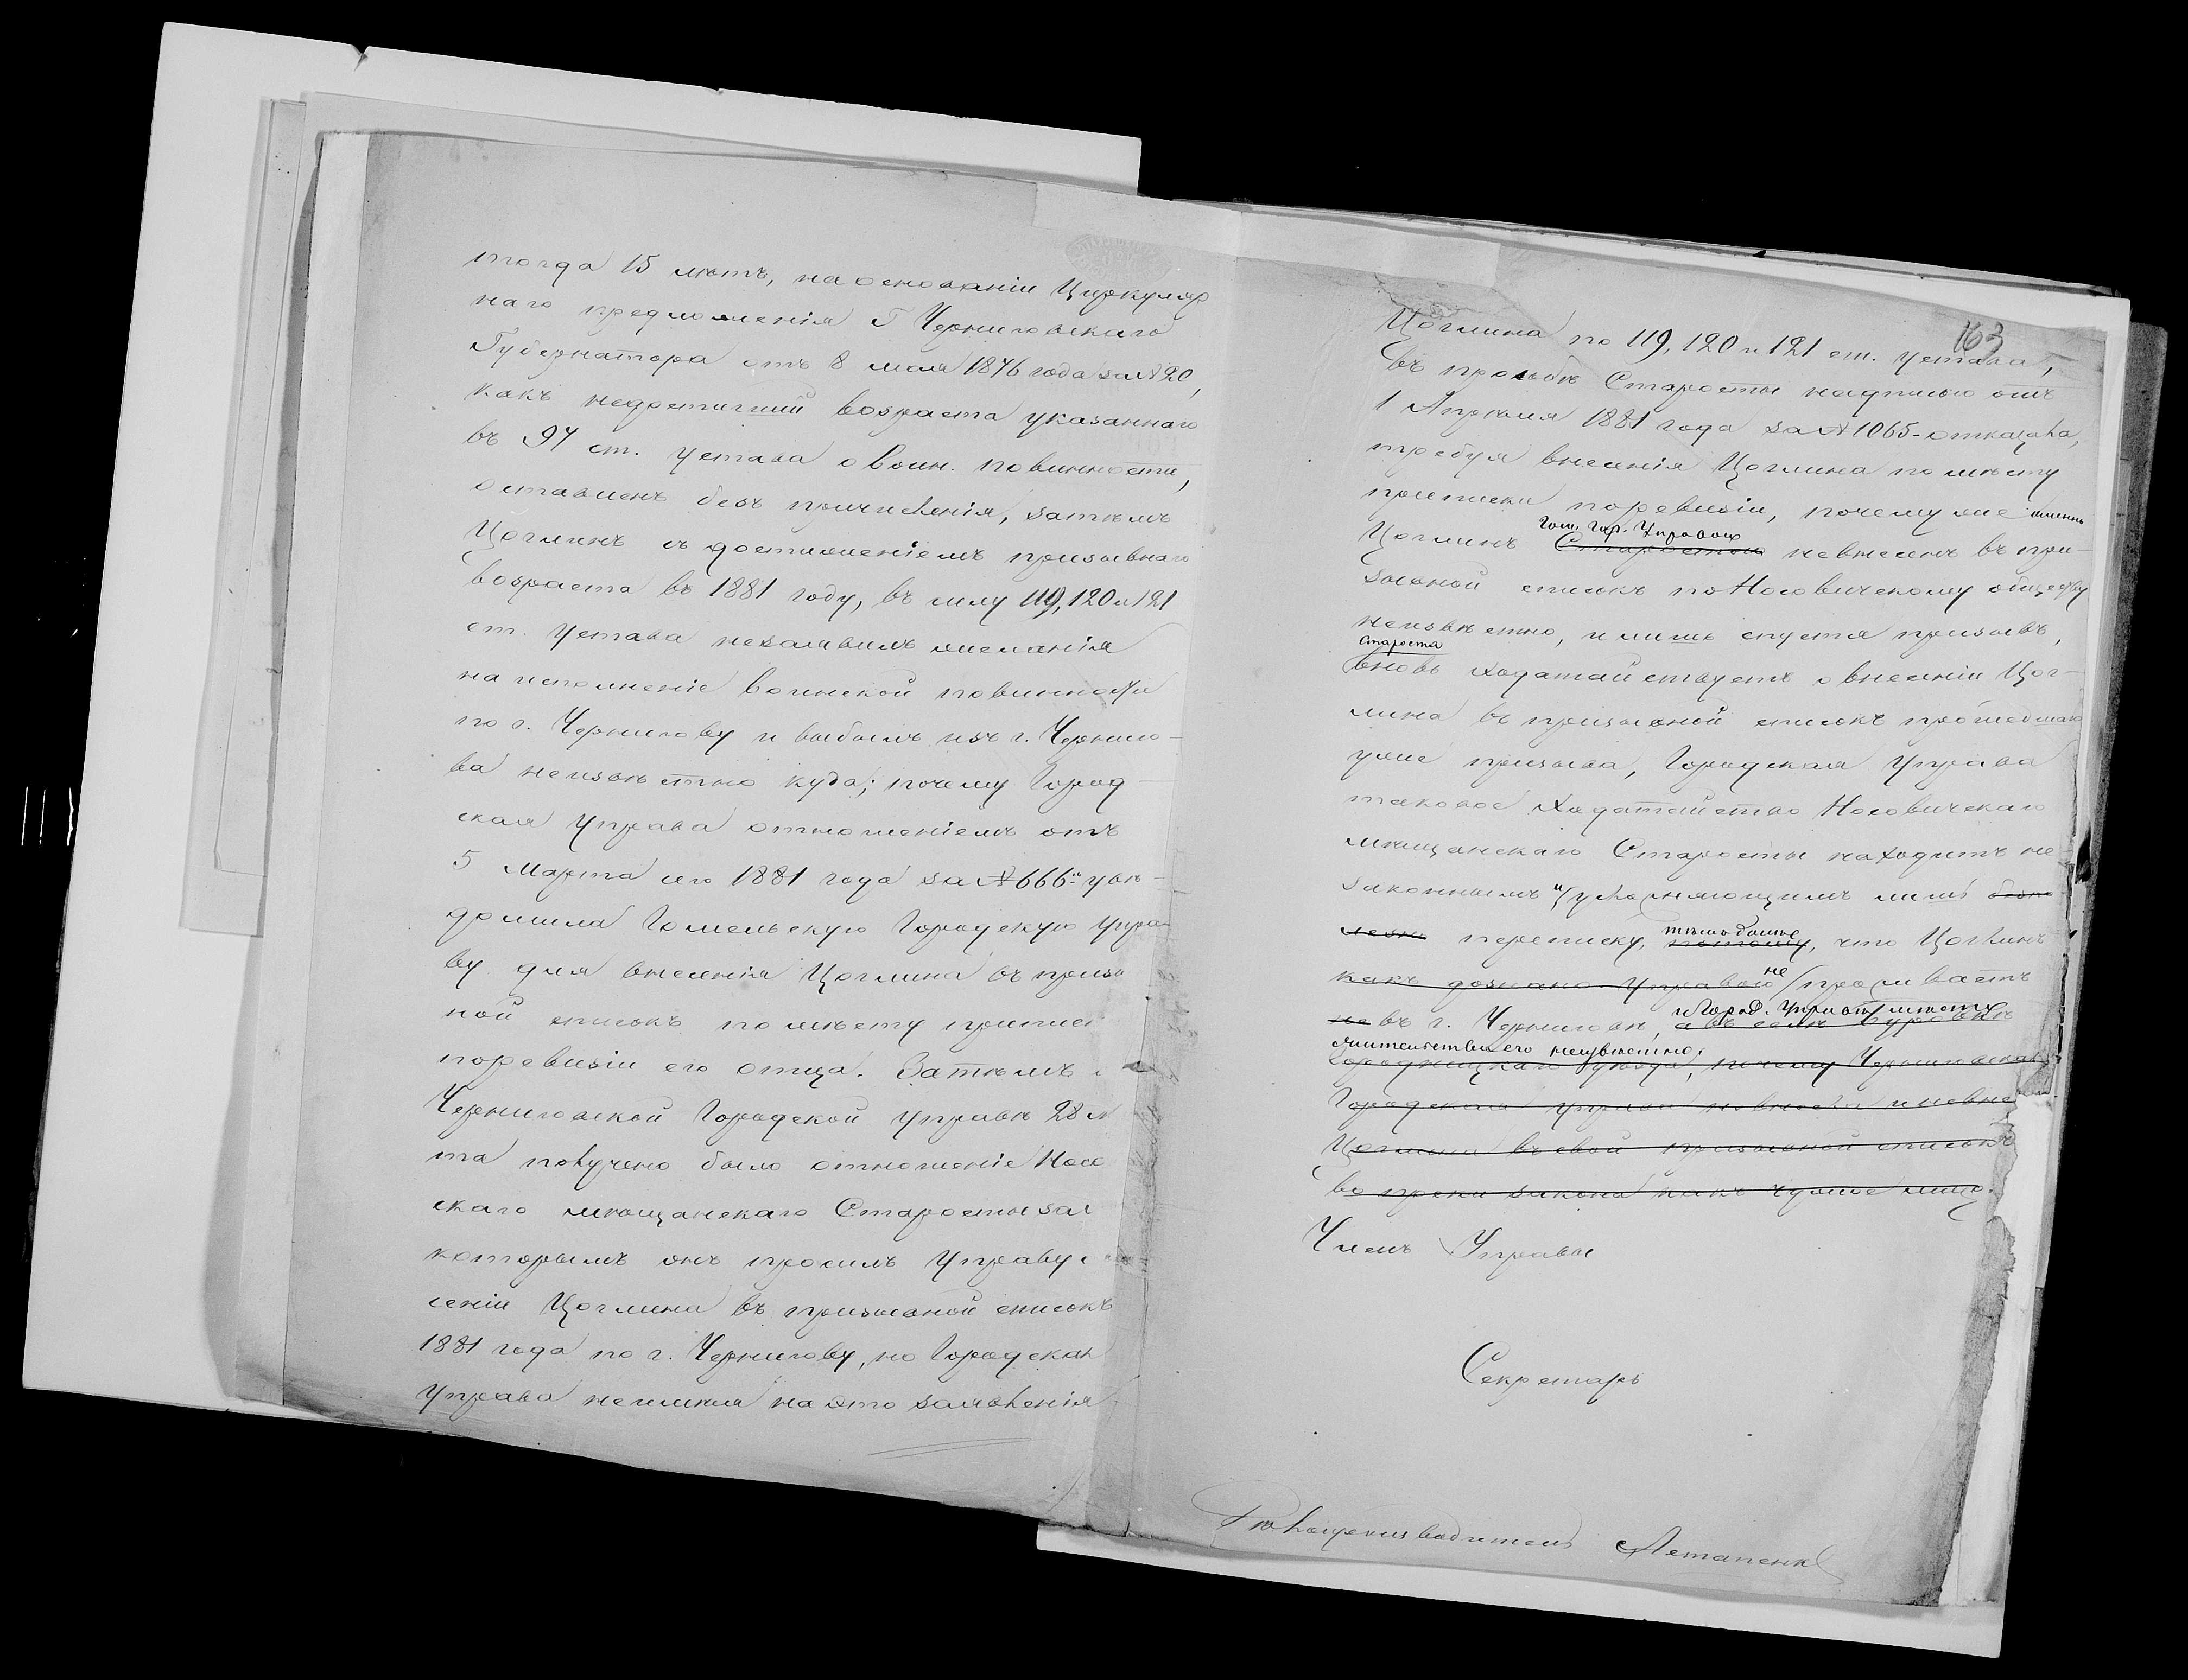 тогда 15 лѣтъ, на основаніи Циркуляр
наго предложенія Г Черниговскаго
Губернатора отъ 8 мая 1876 года за № 20,
какъ недостигшій возраста указаннаго
въ 97 ст. устава о воин. повинности,
оставленъ безъ причисленія, затѣмъ
Цоглинъ съ достиженіемъ призывнаго
возраста въ 1881 году, въ силу 119, 120 и 121
ст. устава незаявилъ желанія
на исполненіе воинской повинности
по г. Чернигову и выбылъ изъ г. Черниго-
ва неизвѣстно куда; почему Город-
ская Управа отношеніемъ отъ
5 Марта сего 1881 года за № 666 увѣ-
домила Гомельскую Городскую Упра-
ву для внесенія Цоглина въ призы
ной списокъ по мѣсту приписк
по ревизіи его отца. Затѣмъ
Черниговской Городской Управѣ 28 М
та получено было отношеніе Носо
скаго мѣщанскаго Старосты за
которымъ онъ просилъ Управу
сеніи Цоглина въ призывной списокъ
1881 года по г. Чернигову, но Городская
Управа неимѣя на это заявленія
163
Цоглина по 119, 120 и 121 ст. устава,
въ просьбѣ Старосты надписью отъ
1 Апрѣля 1881 года за № 1065 - отказала,
требуя внесенія Цоглина по мѣсту
приписки по ревизіи, почему же именно
Гом. Гор. Управою
Цоглинъ Старостою невнесенъ въ при-
зывной списокъ по Носовичскому обществу
неизвѣстно, и лишь спустя призывъ,
Староста
вновь ходатайствуетъ о внесеніи Цог-
лина въ призывной списокъ прошедшаго
уже призыва, Городская Управа
таковое ходатайство Носовичскаго
мѣщанскаго Старосты находитъ не
законнымъ и усложняющимъ лишь
переписку, тѣмъ болѣе
потому, что Цоглинъ
какъ дознано Управою не проживаетъ
не въ г. Черниговѣ, и Город. Управѣ мѣсто
а въ селѣ
жительства его неизвѣстно.
Городницкаго уѣзда, почему Черниговская
Городская Управа
Цоглина въ свой призывной списокъ
вопреки закона какъ чужое лицо.
Членъ Управы
Секретарь
Дѣлопроизводитель